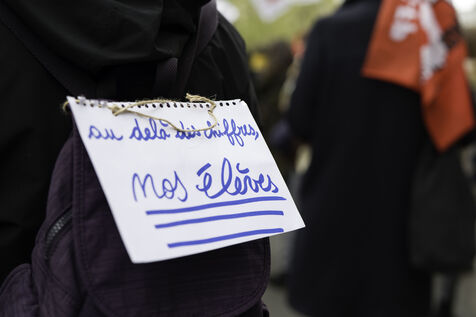 au delà des chiffres,
nos élèves